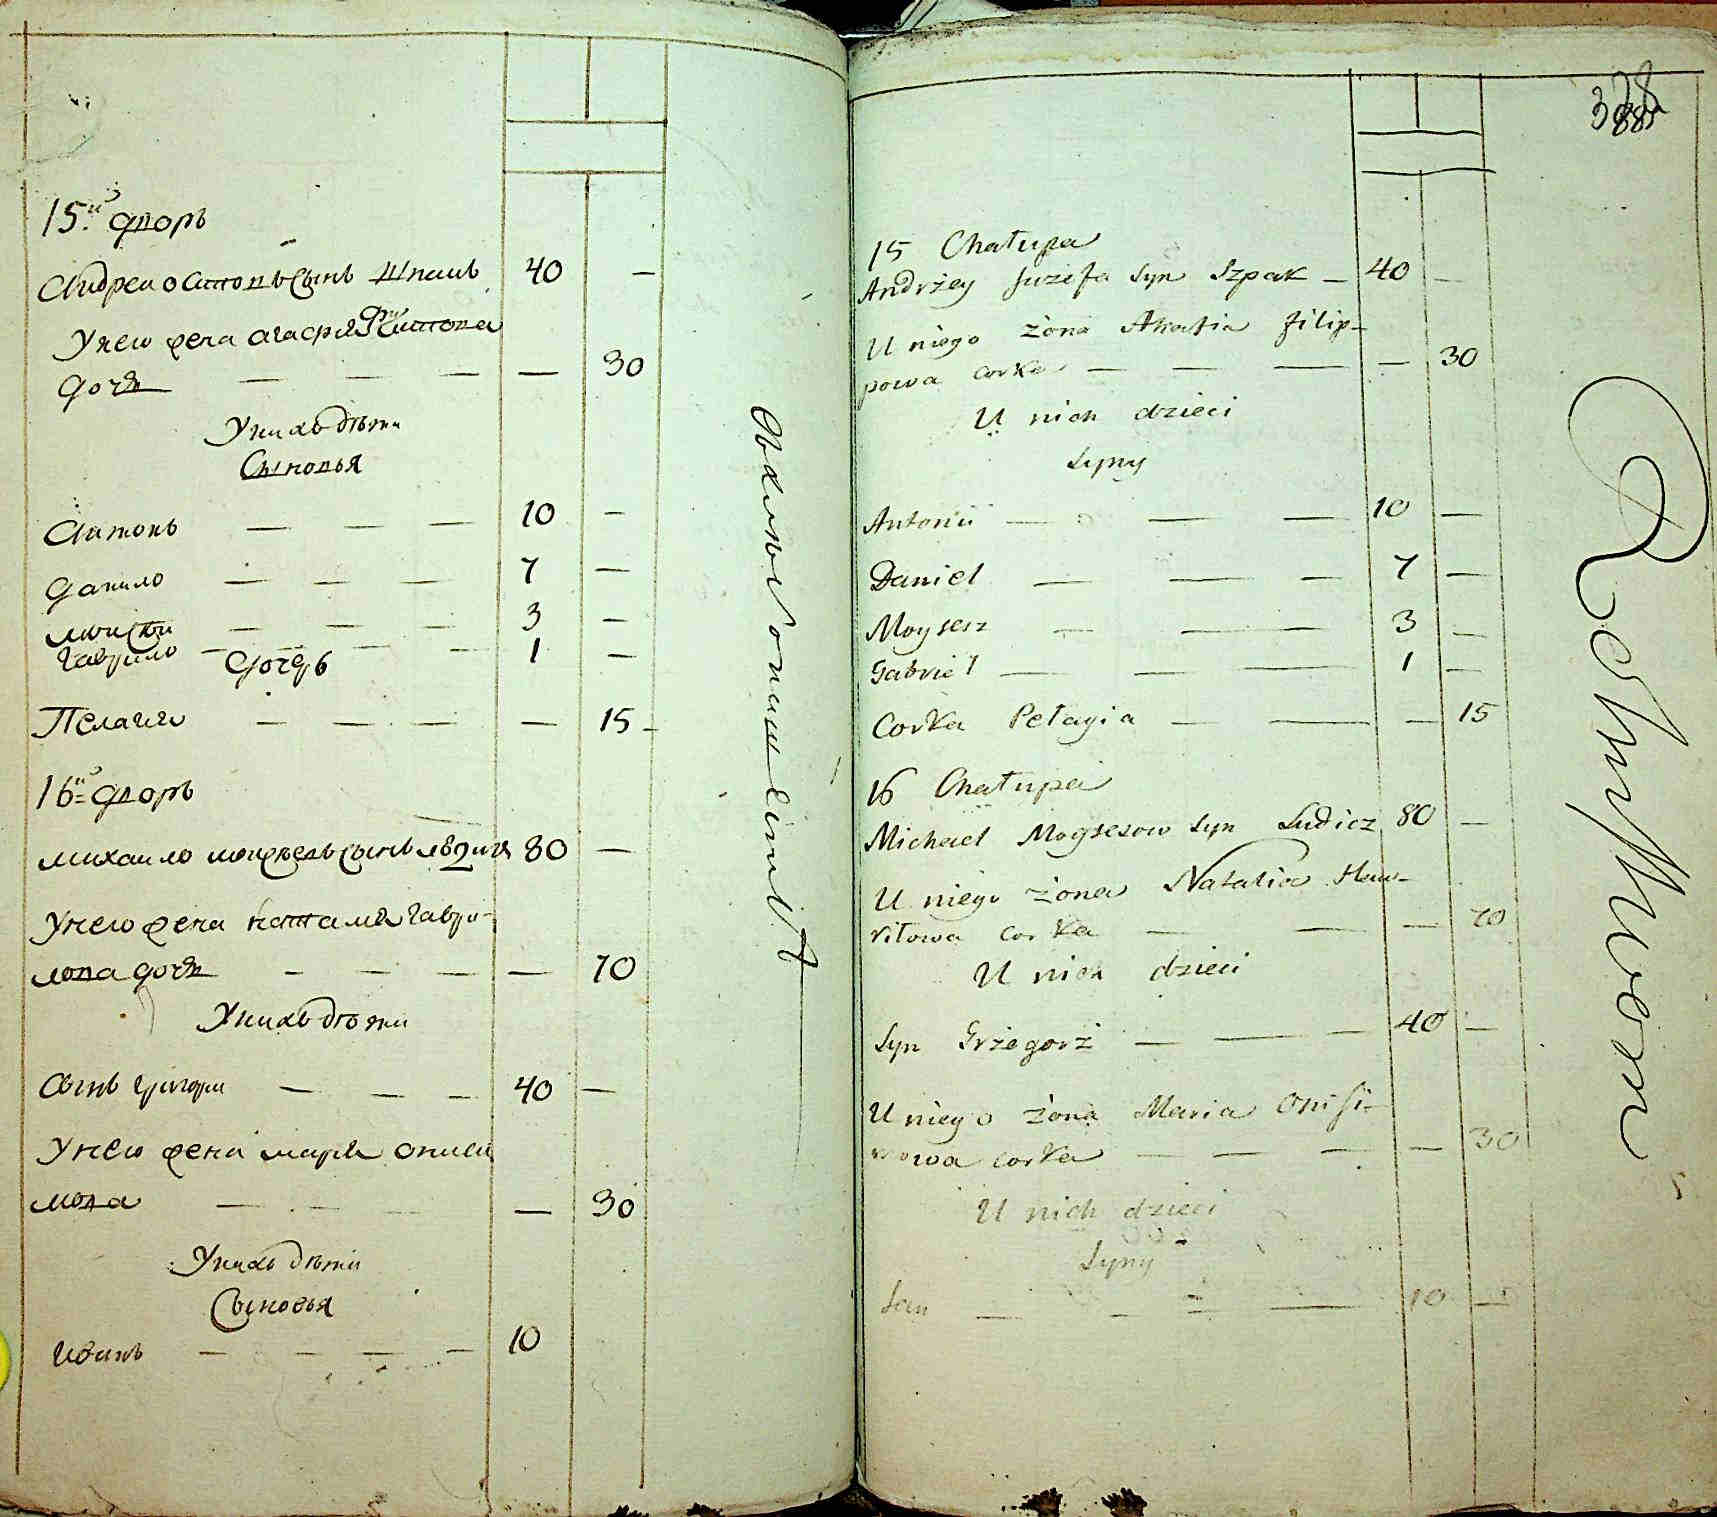 15й дворъ
Андреи Осиповъ сынъ Шпакъ 40 —
У него жена Агафия Филипова
дочь — — — — 30
У нихъ дѣти
Сыновья
Антонъ — — — 10 —
Данило — — — 7 —
Моисеи — — — 3 —
Гаврило — — — 1 —
дочерь
Пелагия — — — — 15 —
16й дворъ
Михаило Моисѣевъ сынъ 80 —
У него жена Наталия Гаври-
лова дочь — — — — 70
У нихъ дѣти
Сынъ Григори — — — 40 —
У него жена Мария Ониси
мова — — — — 30
У нихъ дѣти
Сыновья
Иванъ — — — — 10
388
15 Chałupa
Andrzey Juzefa Syn Szpak — 40 —
U niego żona Ahafia Filip-
powa corka — — — — 30
U nich dzieci
Syny
Antonii — — — 10 —
Daniel — — — 7 —
Moysesz — — — 3 —
Gabriel — — — 1 —
Corka Pełagia — — — 15
16 Chałupa
Michael Moysesow Syn Ludicz 80 —
U niego żona Natalia Haw-
riłowa corka — — — 70
U nich dzieci
Syn Grzegorz — — — 40 —
U niego żona Maria Onisi-
mowa corka — — — — 30
U nich dzieci
Syny
Jan — — — — 10 —